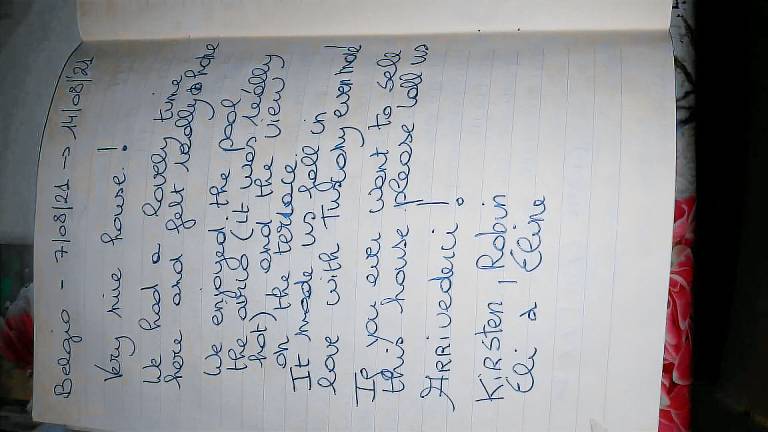 Belgio - 7/08/21 -> 14/08/21
Very nice house!
We had a lovely time
here and felt really @ home
We enjoyed the pool
the airco (it was really
hot) and the view
on the terrace.
It made us fall in
love with Tuscany even more
If you ever want to sell
this house please call us
ARRIVEDERCI!
KIRSTEN, Robin
Eli & Eline